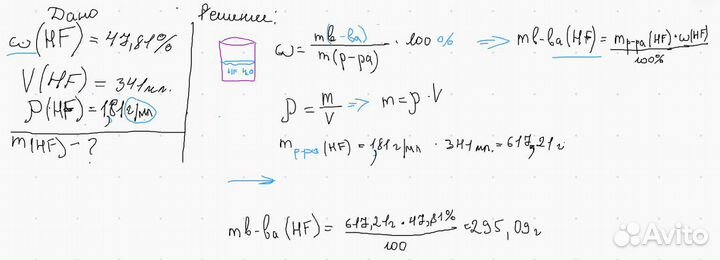 Дано
ω(HF) = 47,81%
V(HF) = 341мл.
ρ(HF) = 1,81г/мл
m(HF) - ?
Решение:
HF H₂O
ω = mв-ва / m(р-ра) · 100% => mв-ва(HF) = mр-ра(HF)·ω(HF) / 100%
ρ = m / V => m = ρ·V
mр-ра(HF) = 1,81г/мл · 341мл. = 617,21г
→
mв-ва(HF) = 617,21г · 47,81% / 100 = 295,09г
Avito